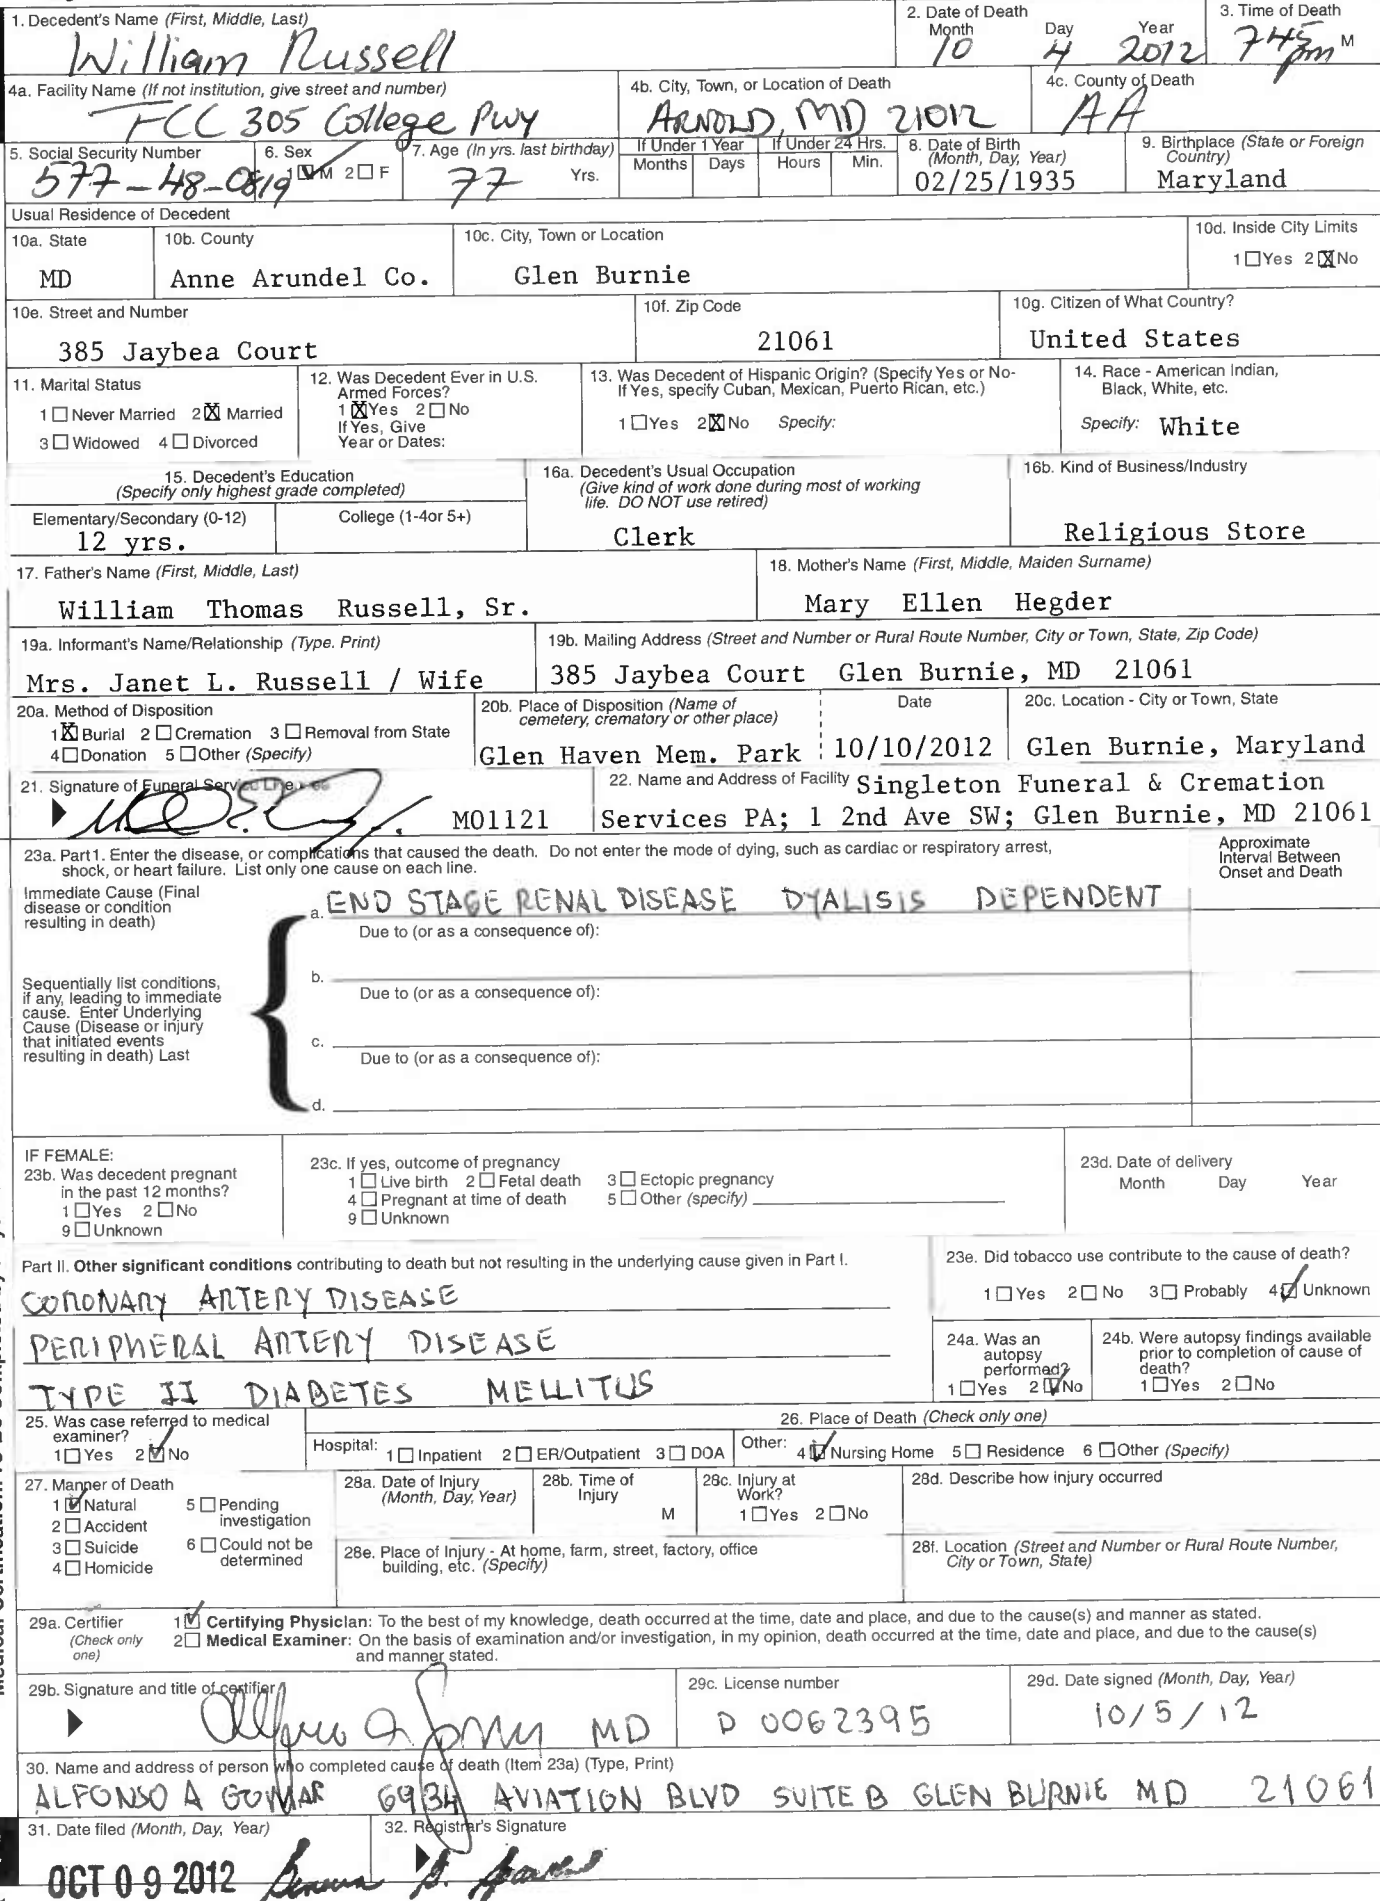 1. Decedent's Name (First, Middle, Last)
William Russell
2. Date of Death
Month Day Year
10 4 2012
3. Time of Death
745 pm M
4a. Facility Name (If not institution, give street and number)
FCC 305 College Pwy
4b. City, Town, or Location of Death
ARNOLD, MD 21012
4c. County of Death
AA
5. Social Security Number
577-48-0819
6. Sex
1 M 2 F
7. Age (In yrs. last birthday)
77 Yrs.
If Under 1 Year
Months Days
If Under 24 Hrs.
Hours Min.
8. Date of Birth
(Month, Day, Year)
02/25/1935
9. Birthplace (State or Foreign
Country)
Maryland
Usual Residence of Decedent
10a. State
MD
10b. County
Anne Arundel Co.
10c. City, Town or Location
Glen Burnie
10d. Inside City Limits
1 Yes 2 X No
10e. Street and Number
385 Jaybea Court
10f. Zip Code
21061
10g. Citizen of What Country?
United States
11. Marital Status
1 Never Married 2 X Married
3 Widowed 4 Divorced
12. Was Decedent Ever in U.S.
Armed Forces?
1 X Yes 2 No
If Yes, Give
Year or Dates:
13. Was Decedent of Hispanic Origin? (Specify Yes or No-
If Yes, specify Cuban, Mexican, Puerto Rican, etc.)
1 Yes 2 X No Specify:
14. Race - American Indian,
Black, White, etc.
Specify: White
15. Decedent's Education
(Specify only highest grade completed)
Elementary/Secondary (0-12)
12 yrs.
College (1-4or 5+)
16a. Decedent's Usual Occupation
(Give kind of work done during most of working
life. DO NOT use retired)
Clerk
16b. Kind of Business/Industry
Religious Store
17. Father's Name (First, Middle, Last)
William Thomas Russell, Sr.
18. Mother's Name (First, Middle, Maiden Surname)
Mary Ellen Hegder
19a. Informant's Name/Relationship (Type. Print)
Mrs. Janet L. Russell / Wife
19b. Mailing Address (Street and Number or Rural Route Number, City or Town, State, Zip Code)
385 Jaybea Court Glen Burnie, MD 21061
20a. Method of Disposition
1 X Burial 2 Cremation 3 Removal from State
4 Donation 5 Other (Specify)
20b. Place of Disposition (Name of
cemetery, crematory or other place)
Glen Haven Mem. Park
Date
10/10/2012
20c. Location - City or Town, State
Glen Burnie, Maryland
21. Signature of Funeral Service
M01121
22. Name and Address of Facility Singleton Funeral & Cremation
Services PA; 1 2nd Ave SW; Glen Burnie, MD 21061
23a. Part1. Enter the disease, or complications that caused the death. Do not enter the mode of dying, such as cardiac or respiratory arrest,
shock, or heart failure. List only one cause on each line.
Approximate
Interval Between
Onset and Death
Immediate Cause (Final
disease or condition
resulting in death)
a. END STAGE RENAL DISEASE DYALISIS DEPENDENT
Due to (or as a consequence of):
Sequentially list conditions,
if any, leading to immediate
cause. Enter Underlying
Cause (Disease or injury
that initiated events
resulting in death) Last
b.
Due to (or as a consequence of):
c.
Due to (or as a consequence of):
d.
IF FEMALE:
23b. Was decedent pregnant
in the past 12 months?
1 Yes 2 No
9 Unknown
23c. If yes, outcome of pregnancy
1 Live birth 2 Fetal death 3 Ectopic pregnancy
4 Pregnant at time of death 5 Other (specify)
9 Unknown
23d. Date of delivery
Month Day Year
Part II. Other significant conditions contributing to death but not resulting in the underlying cause given in Part I.
CORONARY ARTERY DISEASE
PERIPHERAL ARTERY DISEASE
TYPE II DIABETES MELLITUS
23e. Did tobacco use contribute to the cause of death?
1 Yes 2 No 3 Probably 4 Unknown
24a. Was an
autopsy
performed?
1 Yes 2 No
24b. Were autopsy findings available
prior to completion of cause of
death?
1 Yes 2 No
25. Was case referred to medical
examiner?
1 Yes 2 No
26. Place of Death (Check only one)
Hospital: 1 Inpatient 2 ER/Outpatient 3 DOA
Other: 4 Nursing Home 5 Residence 6 Other (Specify)
27. Manner of Death
1 Natural 5 Pending
investigation
2 Accident
3 Suicide 6 Could not be
determined
4 Homicide
28a. Date of Injury
(Month, Day, Year)
28b. Time of
Injury
M
28c. Injury at
Work?
1 Yes 2 No
28d. Describe how injury occurred
28e. Place of Injury - At home, farm, street, factory, office
building, etc. (Specify)
28f. Location (Street and Number or Rural Route Number,
City or Town, State)
29a. Certifier
(Check only
one)
1 Certifying Physician: To the best of my knowledge, death occurred at the time, date and place, and due to the cause(s) and manner as stated.
2 Medical Examiner: On the basis of examination and/or investigation, in my opinion, death occurred at the time, date and place, and due to the cause(s)
and manner stated.
29b. Signature and title of certifier
MD
29c. License number
D 0062395
29d. Date signed (Month, Day, Year)
10/5/12
30. Name and address of person who completed cause of death (Item 23a) (Type, Print)
ALFONSO A GOMAR 6934 AVIATION BLVD SUITE B GLEN BURNIE MD 21061
31. Date filed (Month, Day, Year)
OCT 09 2012
32. Registrar's Signature